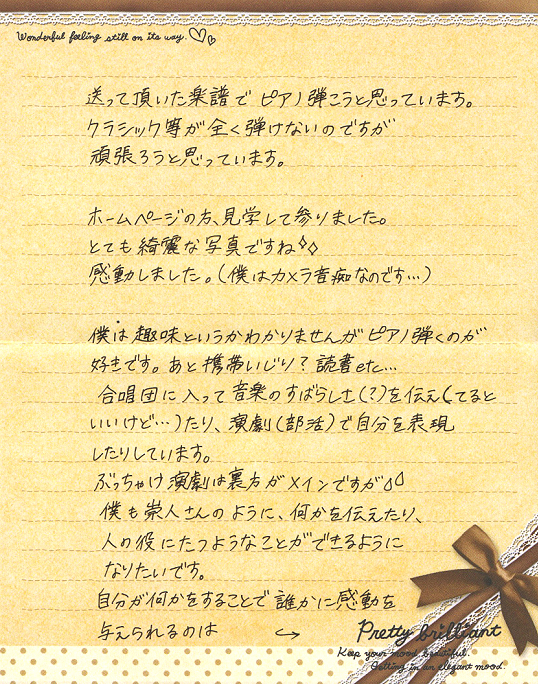 Wonderful feeling still on its way.
送って頂いた楽譜で ピアノ弾こうと思っています。
クラシック等が全く弾けないのですが
頑張ろうと思っています。
ホームページの方、見学して参りました。
とても綺麗な写真ですね
感動しました。(僕はカメラ音痴なのです…)
僕は趣味というかわかりませんがピアノ弾くのが
好きです。あと携帯いじり?読書etc…
合唱団に入って音楽のすばらしさ(?)を伝え(てると
いいけど…)たり、演劇(部活)で自分を表現
したりしています。
ぶっちゃけ演劇は裏方がメインですが
僕も崇人さんのように、何かを伝えたり、
人の役にたつようなことができるように
なりたいです。
自分が何かをすることで誰かに感動を
与えられるのは →
Pretty brilliant
Keep your mood beautiful.
Getting in an elegant mood.